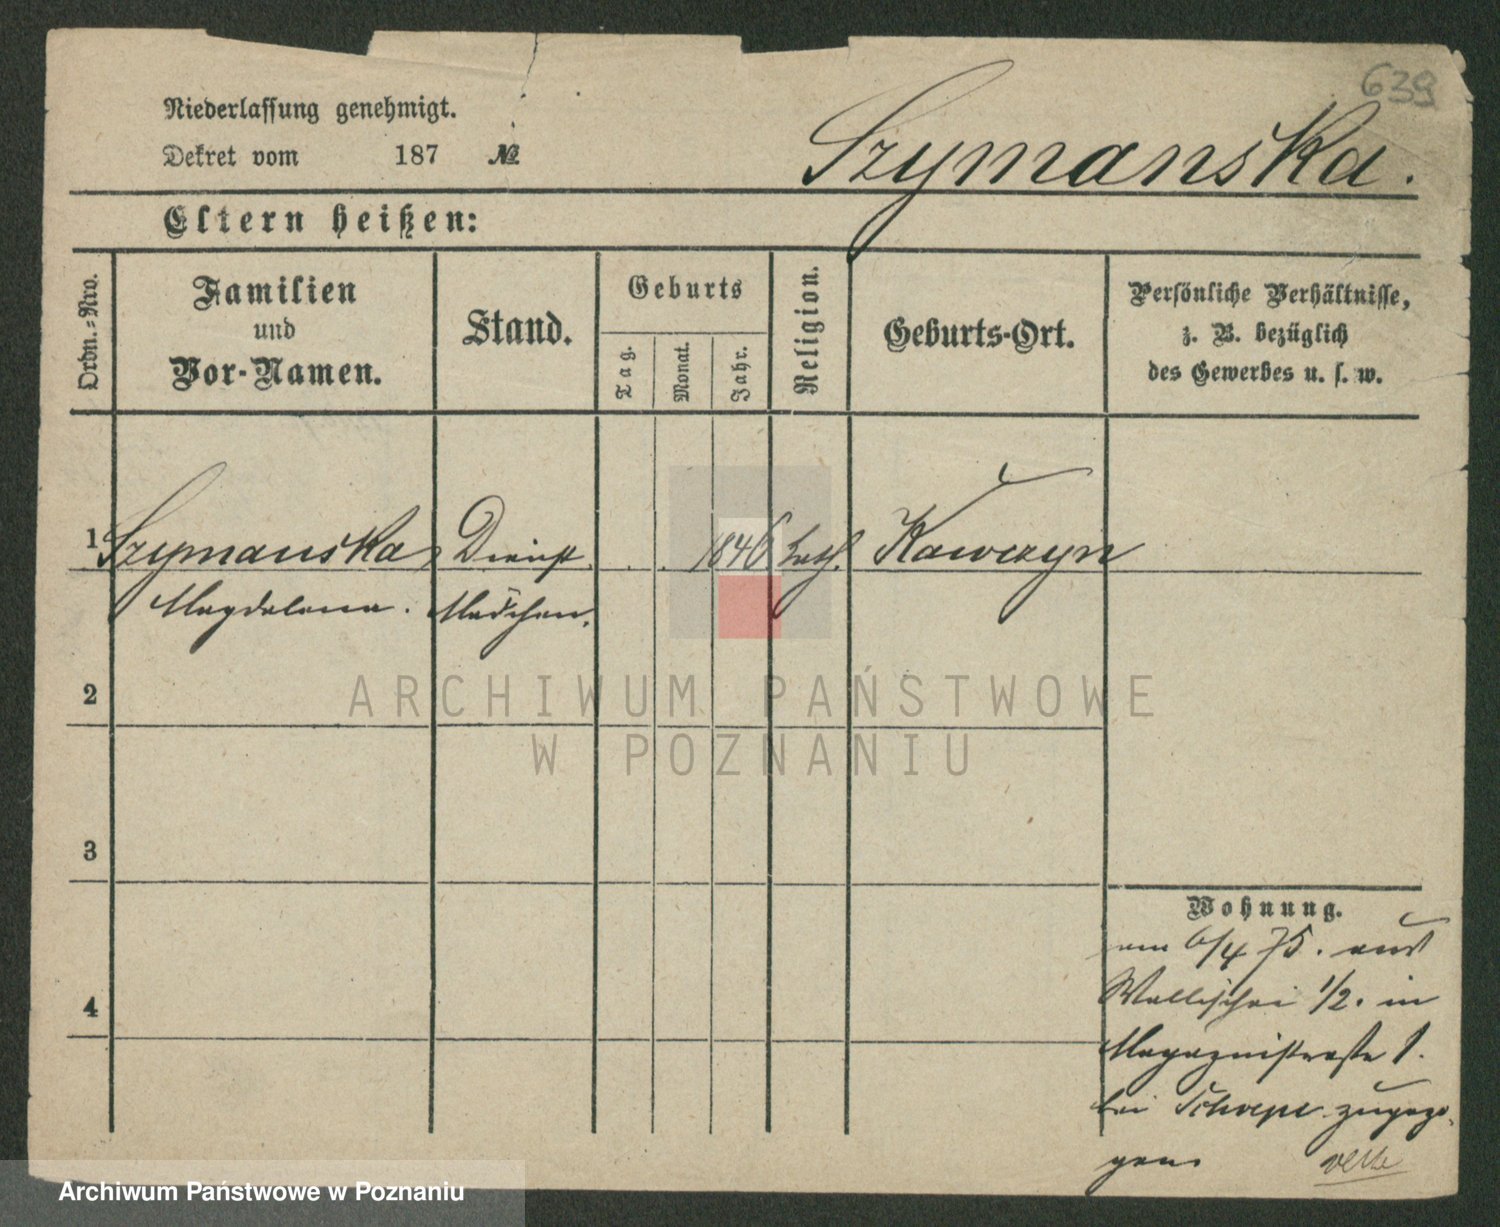 639
Niederlassung genehmigt.
Dekret vom 187 №
Szymanska.
Eltern heißen:
Ordn.=Nro.
Familien
und
Vor-Namen.
Stand.
Geburts
Tag.
Monat.
Jahr.
Religion.
Geburts-Ort.
Persönliche Verhältnisse,
z. B. bezüglich
des Gewerbes u. s. w.
1 Szymanska Dienst 1846 kath. Kawczyn
Magdalena. Mädchen.
2
ARCHIWUM PAŃSTWOWE
W POZNANIU
3
Wohnung.
am 6/4 75. aus
Wallischei 1/2. in
4
Magazinstraße 1.
bei zugezo-
gen.
Archiwum Państwowe w Poznaniu